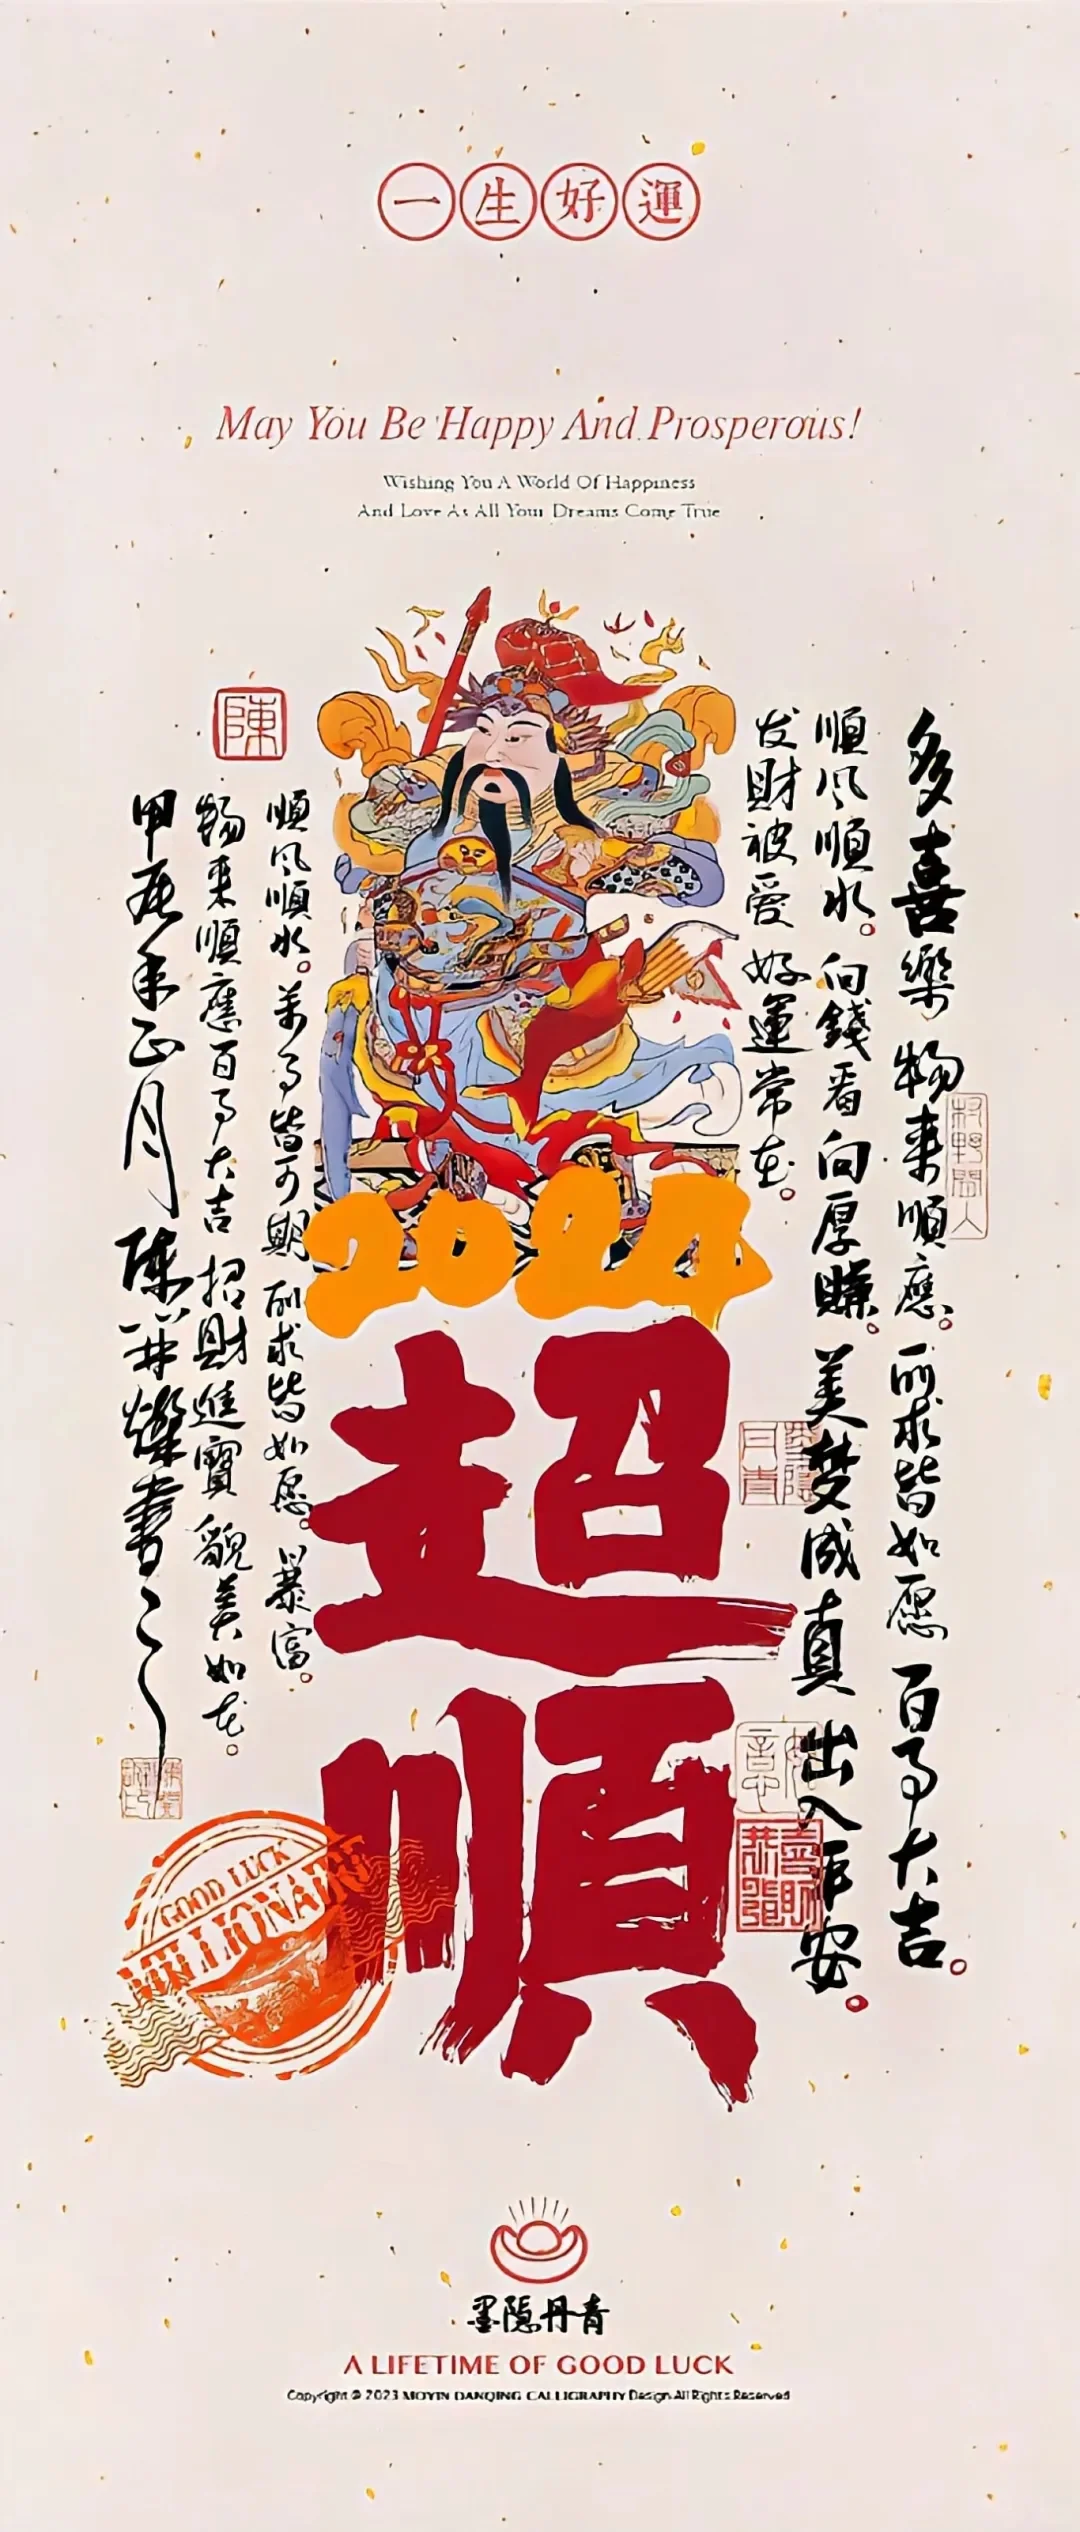 一生好運
May You Be Happy And Prosperous!
Wishing You A World Of Happiness
And Love As All Your Dreams Come True
多喜樂 物来順應。所求皆如愿 百事大吉。
順风順水。向錢看向厚赚。美梦成真 出入平安。
发財被爱 好運常在。
2024
超順
陳
順风順水。萬事皆可期 所求皆如愿。暴富。
物来順應百事大吉 招財進寶 貌美如花。
甲辰年正月 陳
書
GOOD LUCK
MILLIONAIRE
墨隱丹青
A LIFETIME OF GOOD LUCK
Copyright © 2023 MOYIN DANQING CALLIGRAPHY Design All Rights Reserved